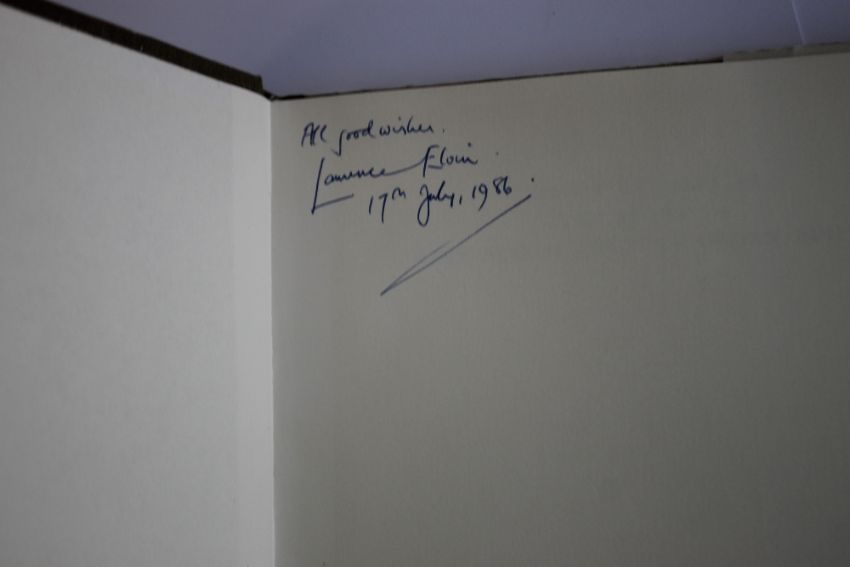 All good wishes.
Laurence Elvin.
17th July, 1986.